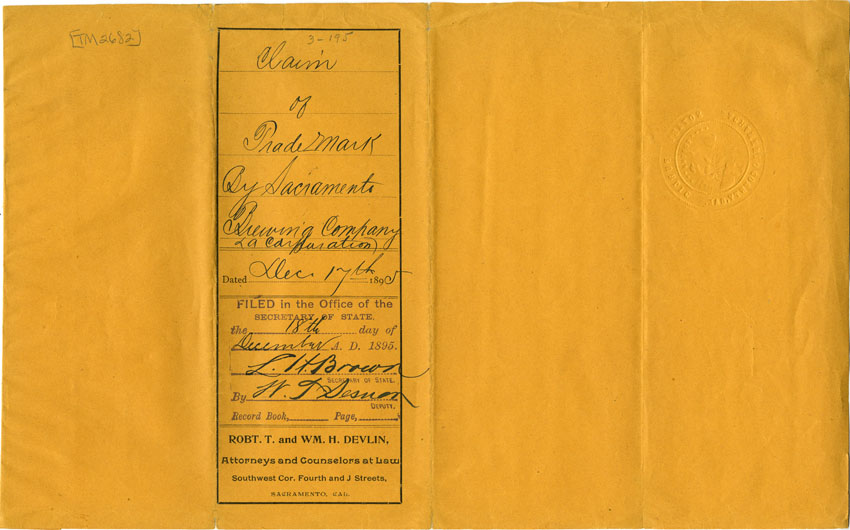 [TM2682]
3-195
Claim
of
Trade Mark
By Sacramento
Brewing Company
(a Corporation)
Dated Dec. 17th 1895
FILED in the Office of the
SECRETARY OF STATE.
the 18th day of
December A. D. 1895.
L. H. Brown
SECRETARY OF STATE.
By W. T.
DEPUTY.
Record Book, Page,
ROBT. T. and WM. H. DEVLIN,
Attorneys and Counselors at Law
Southwest Cor. Fourth and J Streets,
SACRAMENTO, CAL.